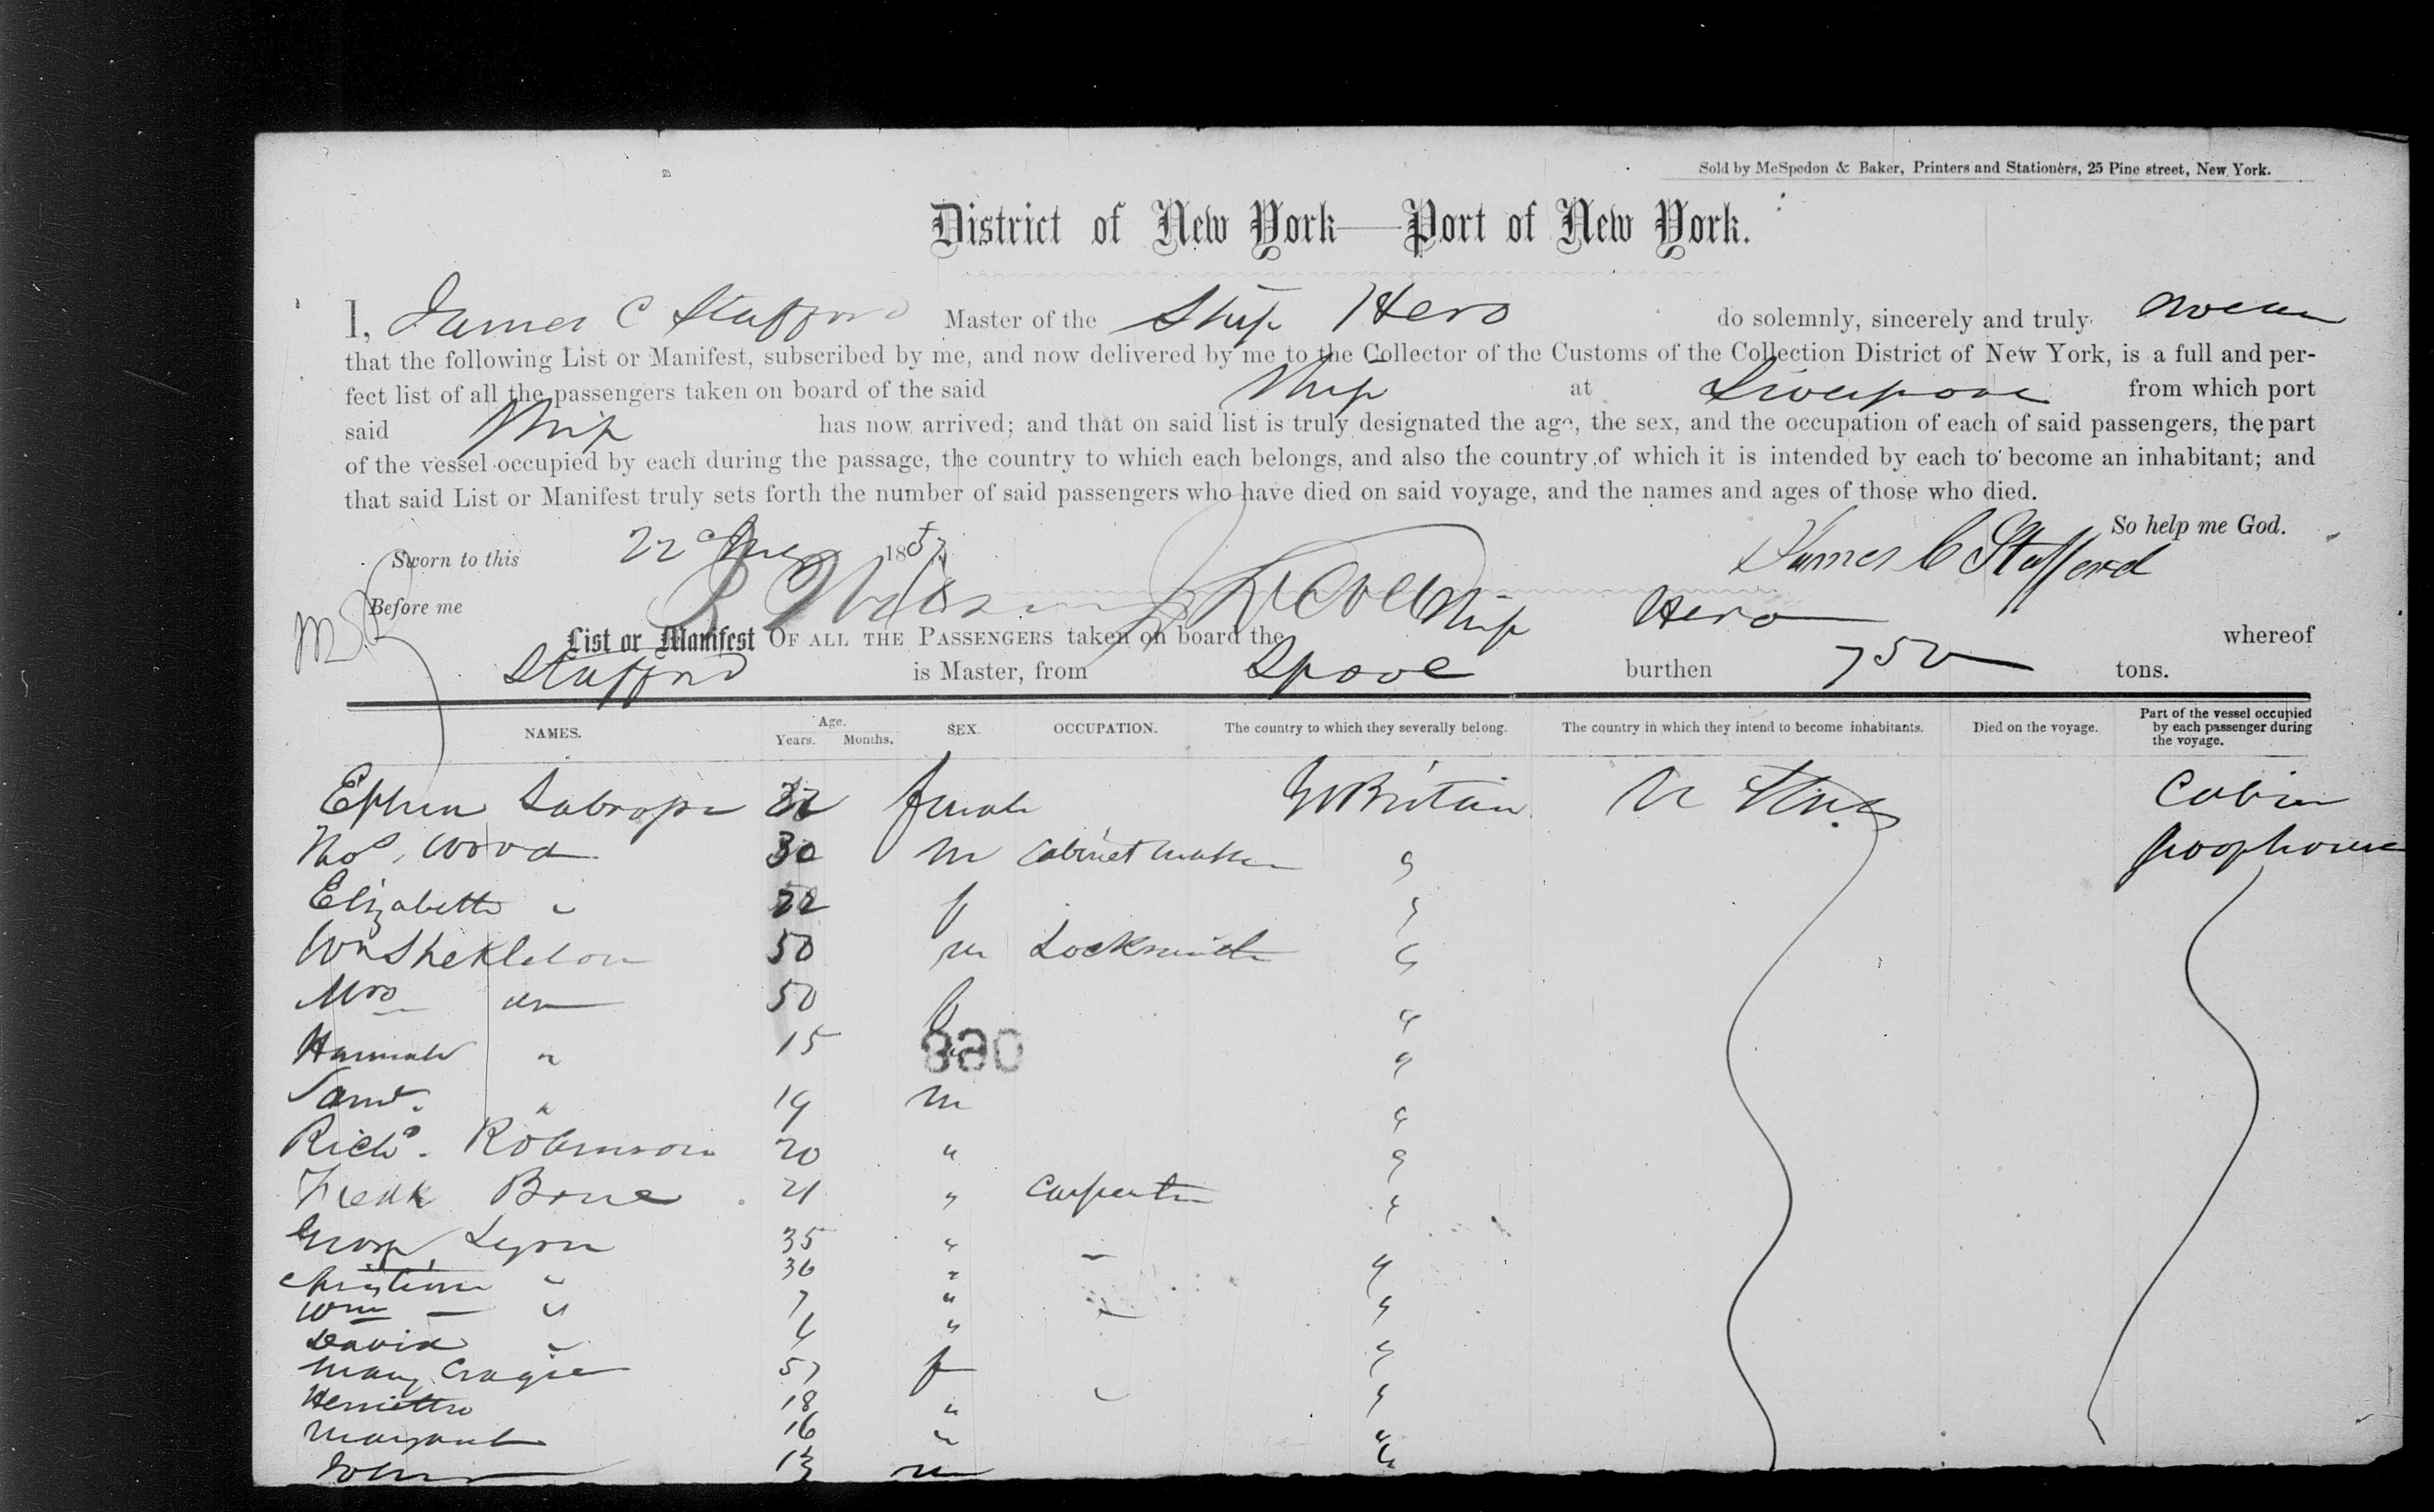 Sold by McSpedon & Baker, Printers and Stationers, 25 Pine street, New York.
District of New York—Port of New York.
I, James C Stafford Master of the Ship Hero do solemnly, sincerely and truly swear
that the following List or Manifest, subscribed by me, and now delivered by me to the Collector of the Customs of the Collection District of New York, is a full and per-
fect list of all the passengers taken on board of the said Ship at Liverpool from which port
said Ship has now arrived; and that on said list is truly designated the age, the sex, and the occupation of each of said passengers, the part
of the vessel occupied by each during the passage, the country to which each belongs, and also the country of which it is intended by each to become an inhabitant; and
that said List or Manifest truly sets forth the number of said passengers who have died on said voyage, and the names and ages of those who died.
So help me God.
Sworn to this 22 185 James C Stafford
Before me
List or Manifest OF ALL THE PASSENGERS taken on board the Ship Hero whereof
Stafford is Master, from Lpool burthen 750 tons.
NAMES. Age. Years. Months. SEX. OCCUPATION. The country to which they severally belong. The country in which they intend to become inhabitants. Died on the voyage. Part of the vessel occupied by each passenger during the voyage.
female Gt Britain U States Cabin
Thos. Wood 30 m Cabinet maker " poophouse
Elizabeth " 22 f "
Wm Shekleton 50 m Locksmith "
Mrs do 50 f "
Hannah " 15 " "
890
Saml. " 19 m "
Richd. Robinson 20 " "
Fredk Bone 21 " Carpenter "
George Lyon 35 " "
Christina " 36 " "
Wm — " 7 " "
David " 4 " "
Mary Cragie 57 f "
Henrietta 18 " "
Margaret 16 " "
John 13 m "